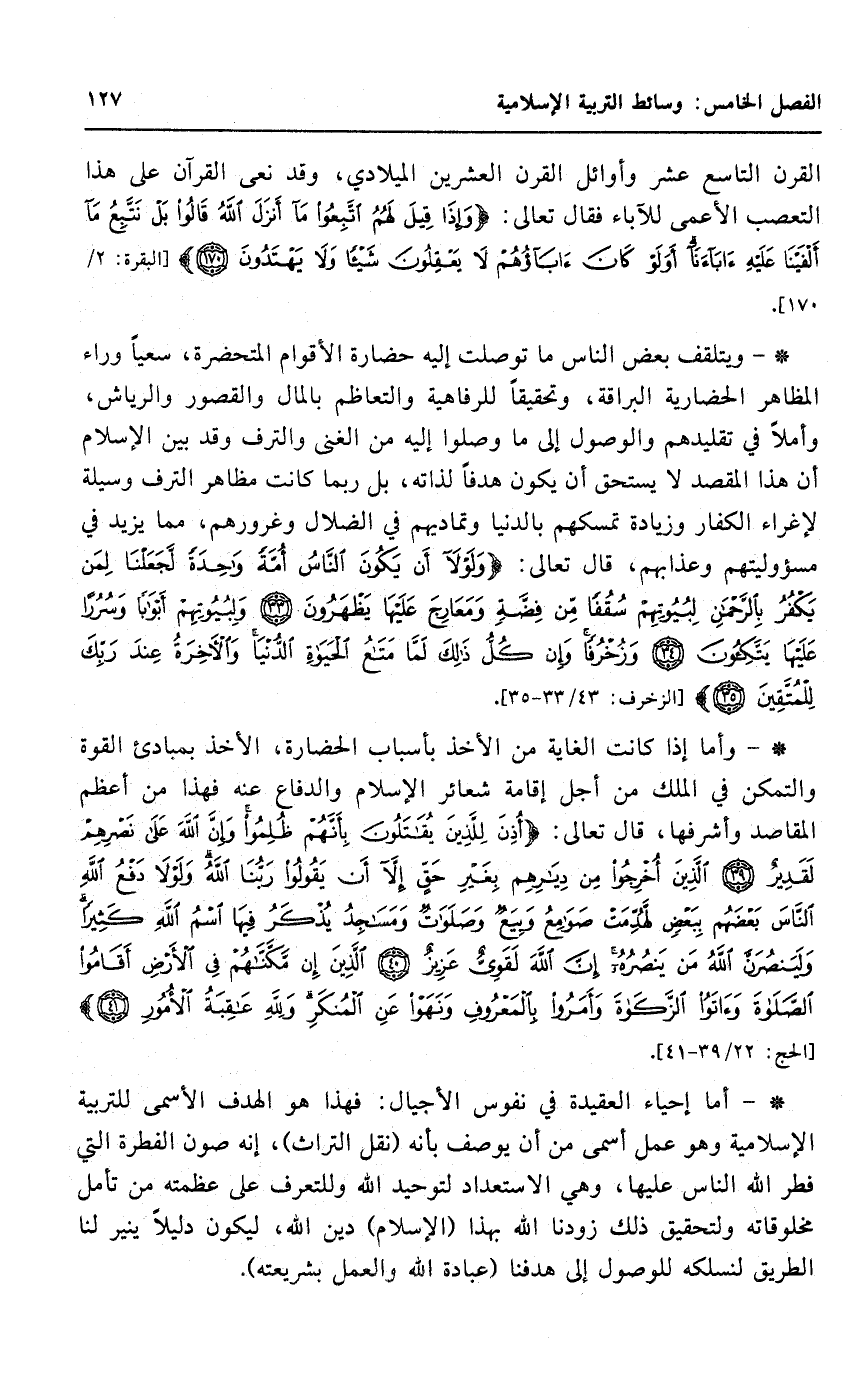 الفصل الخامس: وسائط التربية الإسلامية ١٢٧
القرن التاسع عشر وأوائل القرن العشرين الميلادي، وقد نعى القرآن على هذا
التعصب الأعمى للآباء فقال تعالى: ﴿وَإِذَا قِيلَ لَهُمُ ٱتَّبِعُوا۟ مَآ أَنزَلَ ٱللَّهُ قَالُوا۟ بَلْ نَتَّبِعُ مَآ
أَلْفَيْنَا عَلَيْهِ ءَابَآءَنَآ أَوَلَوْ كَانَ ءَابَآؤُهُمْ لَا يَعْقِلُونَ شَيْـًٔا وَلَا يَهْتَدُونَ ١٧٠﴾ [البقرة: ٢/
١٧٠].
* - ويتلقف بعض الناس ما توصلت إليه حضارة الأقوام المتحضرة، سعياً وراء
المظاهر الحضارية البراقة، وتحقيقاً للرفاهية والتعاظم بالمال والقصور والرياش،
وأملاً في تقليدهم والوصول إلى ما وصلوا إليه من الغنى والترف وقد بين الإسلام
أن هذا المقصد لا يستحق أن يكون هدفاً لذاته، بل ربما كانت مظاهر الترف وسيلة
لإغراء الكفار وزيادة تمسكهم بالدنيا وتماديهم في الضلال وغرورهم، مما يزيد في
مسؤوليتهم وعذابهم، قال تعالى: ﴿وَلَوْلَآ أَن يَكُونَ ٱلنَّاسُ أُمَّةً وَٰحِدَةً لَّجَعَلْنَا لِمَن
يَكْفُرُ بِٱلرَّحْمَٰنِ لِبُيُوتِهِمْ سُقُفًا مِّن فِضَّةٍ وَمَعَارِجَ عَلَيْهَا يَظْهَرُونَ ٣٣ وَلِبُيُوتِهِمْ أَبْوَٰبًا وَسُرُرًا
عَلَيْهَا يَتَّكِـُٔونَ ٣٤ وَزُخْرُفًا ۚ وَإِن كُلُّ ذَٰلِكَ لَمَّا مَتَٰعُ ٱلْحَيَوٰةِ ٱلدُّنْيَا ۚ وَٱلْـَٔاخِرَةُ عِندَ رَبِّكَ
لِلْمُتَّقِينَ ٣٥﴾ [الزخرف: ٤٣/ ٣٣-٣٥].
* - وأما إذا كانت الغاية من الأخذ بأسباب الحضارة، الأخذ بمبادئ القوة
والتمكن في الملك من أجل إقامة شعائر الإسلام والدفاع عنه فهذا من أعظم
المقاصد وأشرفها، قال تعالى: ﴿أُذِنَ لِلَّذِينَ يُقَٰتَلُونَ بِأَنَّهُمْ ظُلِمُوا۟ ۚ وَإِنَّ ٱللَّهَ عَلَىٰ نَصْرِهِمْ
لَقَدِيرٌ ٣٩ ٱلَّذِينَ أُخْرِجُوا۟ مِن دِيَٰرِهِم بِغَيْرِ حَقٍّ إِلَّآ أَن يَقُولُوا۟ رَبُّنَا ٱللَّهُ ۗ وَلَوْلَا دَفْعُ ٱللَّهِ
ٱلنَّاسَ بَعْضَهُم بِبَعْضٍ لَّهُدِّمَتْ صَوَٰمِعُ وَبِيَعٌ وَصَلَوَٰتٌ وَمَسَٰجِدُ يُذْكَرُ فِيهَا ٱسْمُ ٱللَّهِ كَثِيرًا ۗ
وَلَيَنصُرَنَّ ٱللَّهُ مَن يَنصُرُهُۥٓ ۗ إِنَّ ٱللَّهَ لَقَوِىٌّ عَزِيزٌ ٤٠ ٱلَّذِينَ إِن مَّكَّنَّٰهُمْ فِى ٱلْأَرْضِ أَقَامُوا۟
ٱلصَّلَوٰةَ وَءَاتَوُا۟ ٱلزَّكَوٰةَ وَأَمَرُوا۟ بِٱلْمَعْرُوفِ وَنَهَوْا۟ عَنِ ٱلْمُنكَرِ ۗ وَلِلَّهِ عَٰقِبَةُ ٱلْأُمُورِ ٤١﴾
[الحج: ٢٢/ ٣٩-٤١].
* - أما إحياء العقيدة في نفوس الأجيال: فهذا هو الهدف الأسمى للتربية
الإسلامية وهو عمل أسمى من أن يوصف بأنه (نقل التراث)، إنه صون الفطرة التي
فطر الله الناس عليها، وهي الاستعداد لتوحيد الله وللتعرف على عظمته من تأمل
مخلوقاته ولتحقيق ذلك زودنا الله بهذا (الإسلام) دين الله، ليكون دليلاً ينير لنا
الطريق لنسلكه للوصول إلى هدفنا (عبادة الله والعمل بشريعته).